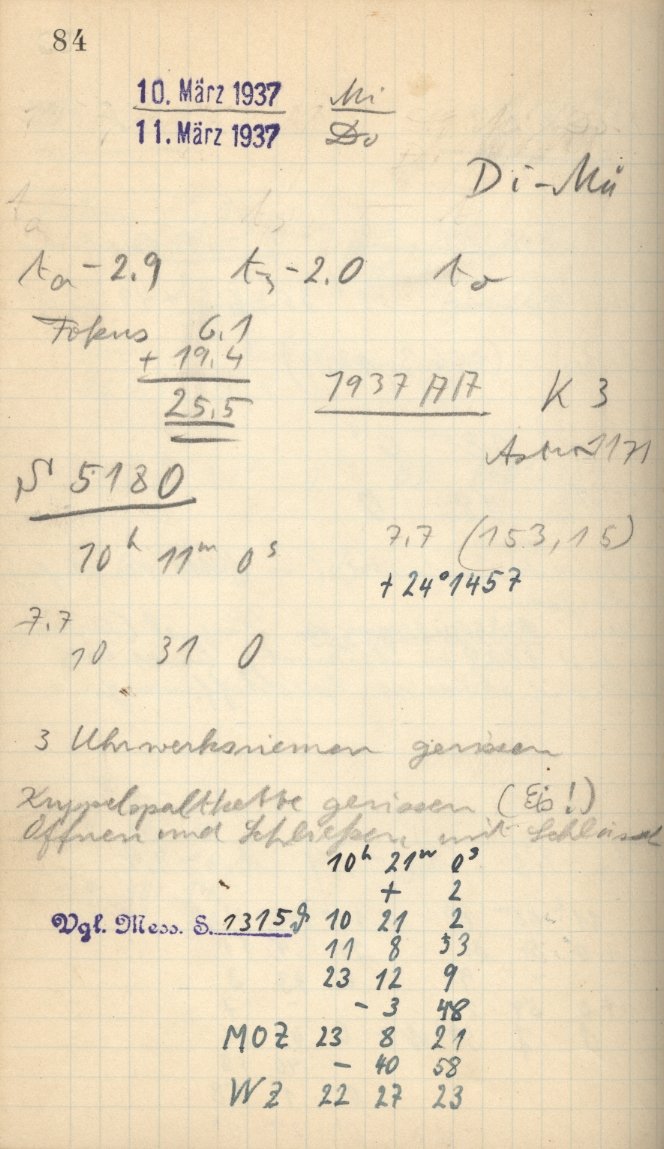 84
10. März 1937 Mi
11. März 1937 Do
Di-Mü
ta -2.9 -2.0
Fokus 6.1
+ 19.4
25.5
1937 AA K 3
5180
10h 11m 0s
7.7 (153,15)
+ 24°1457
7.7
10 31 0
3 Uhrwerksriemen gerissen
Kuppelspaltkette gerissen (Eis!)
Öffnen und Schließen mit
10h 21m 0s
+ 2
Vgl. Mess. S. 1315 10 21 2
11 8 53
23 12 9
- 3 48
MOZ 23 8 21
- 40 58
WZ 22 27 23